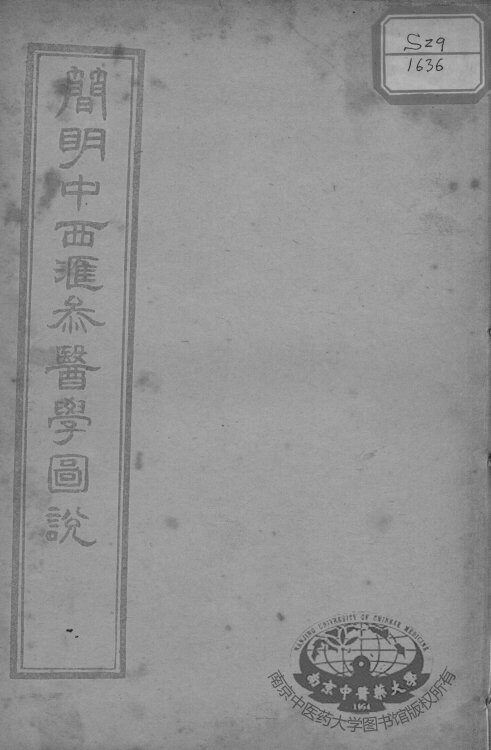 簡明中西滙參醫學圖說
Szq
1636
NANJING UNIVERSITY OF CHINESE MEDICINE
南京中醫藥大學
1954
南京中医药大学图书馆版权所有